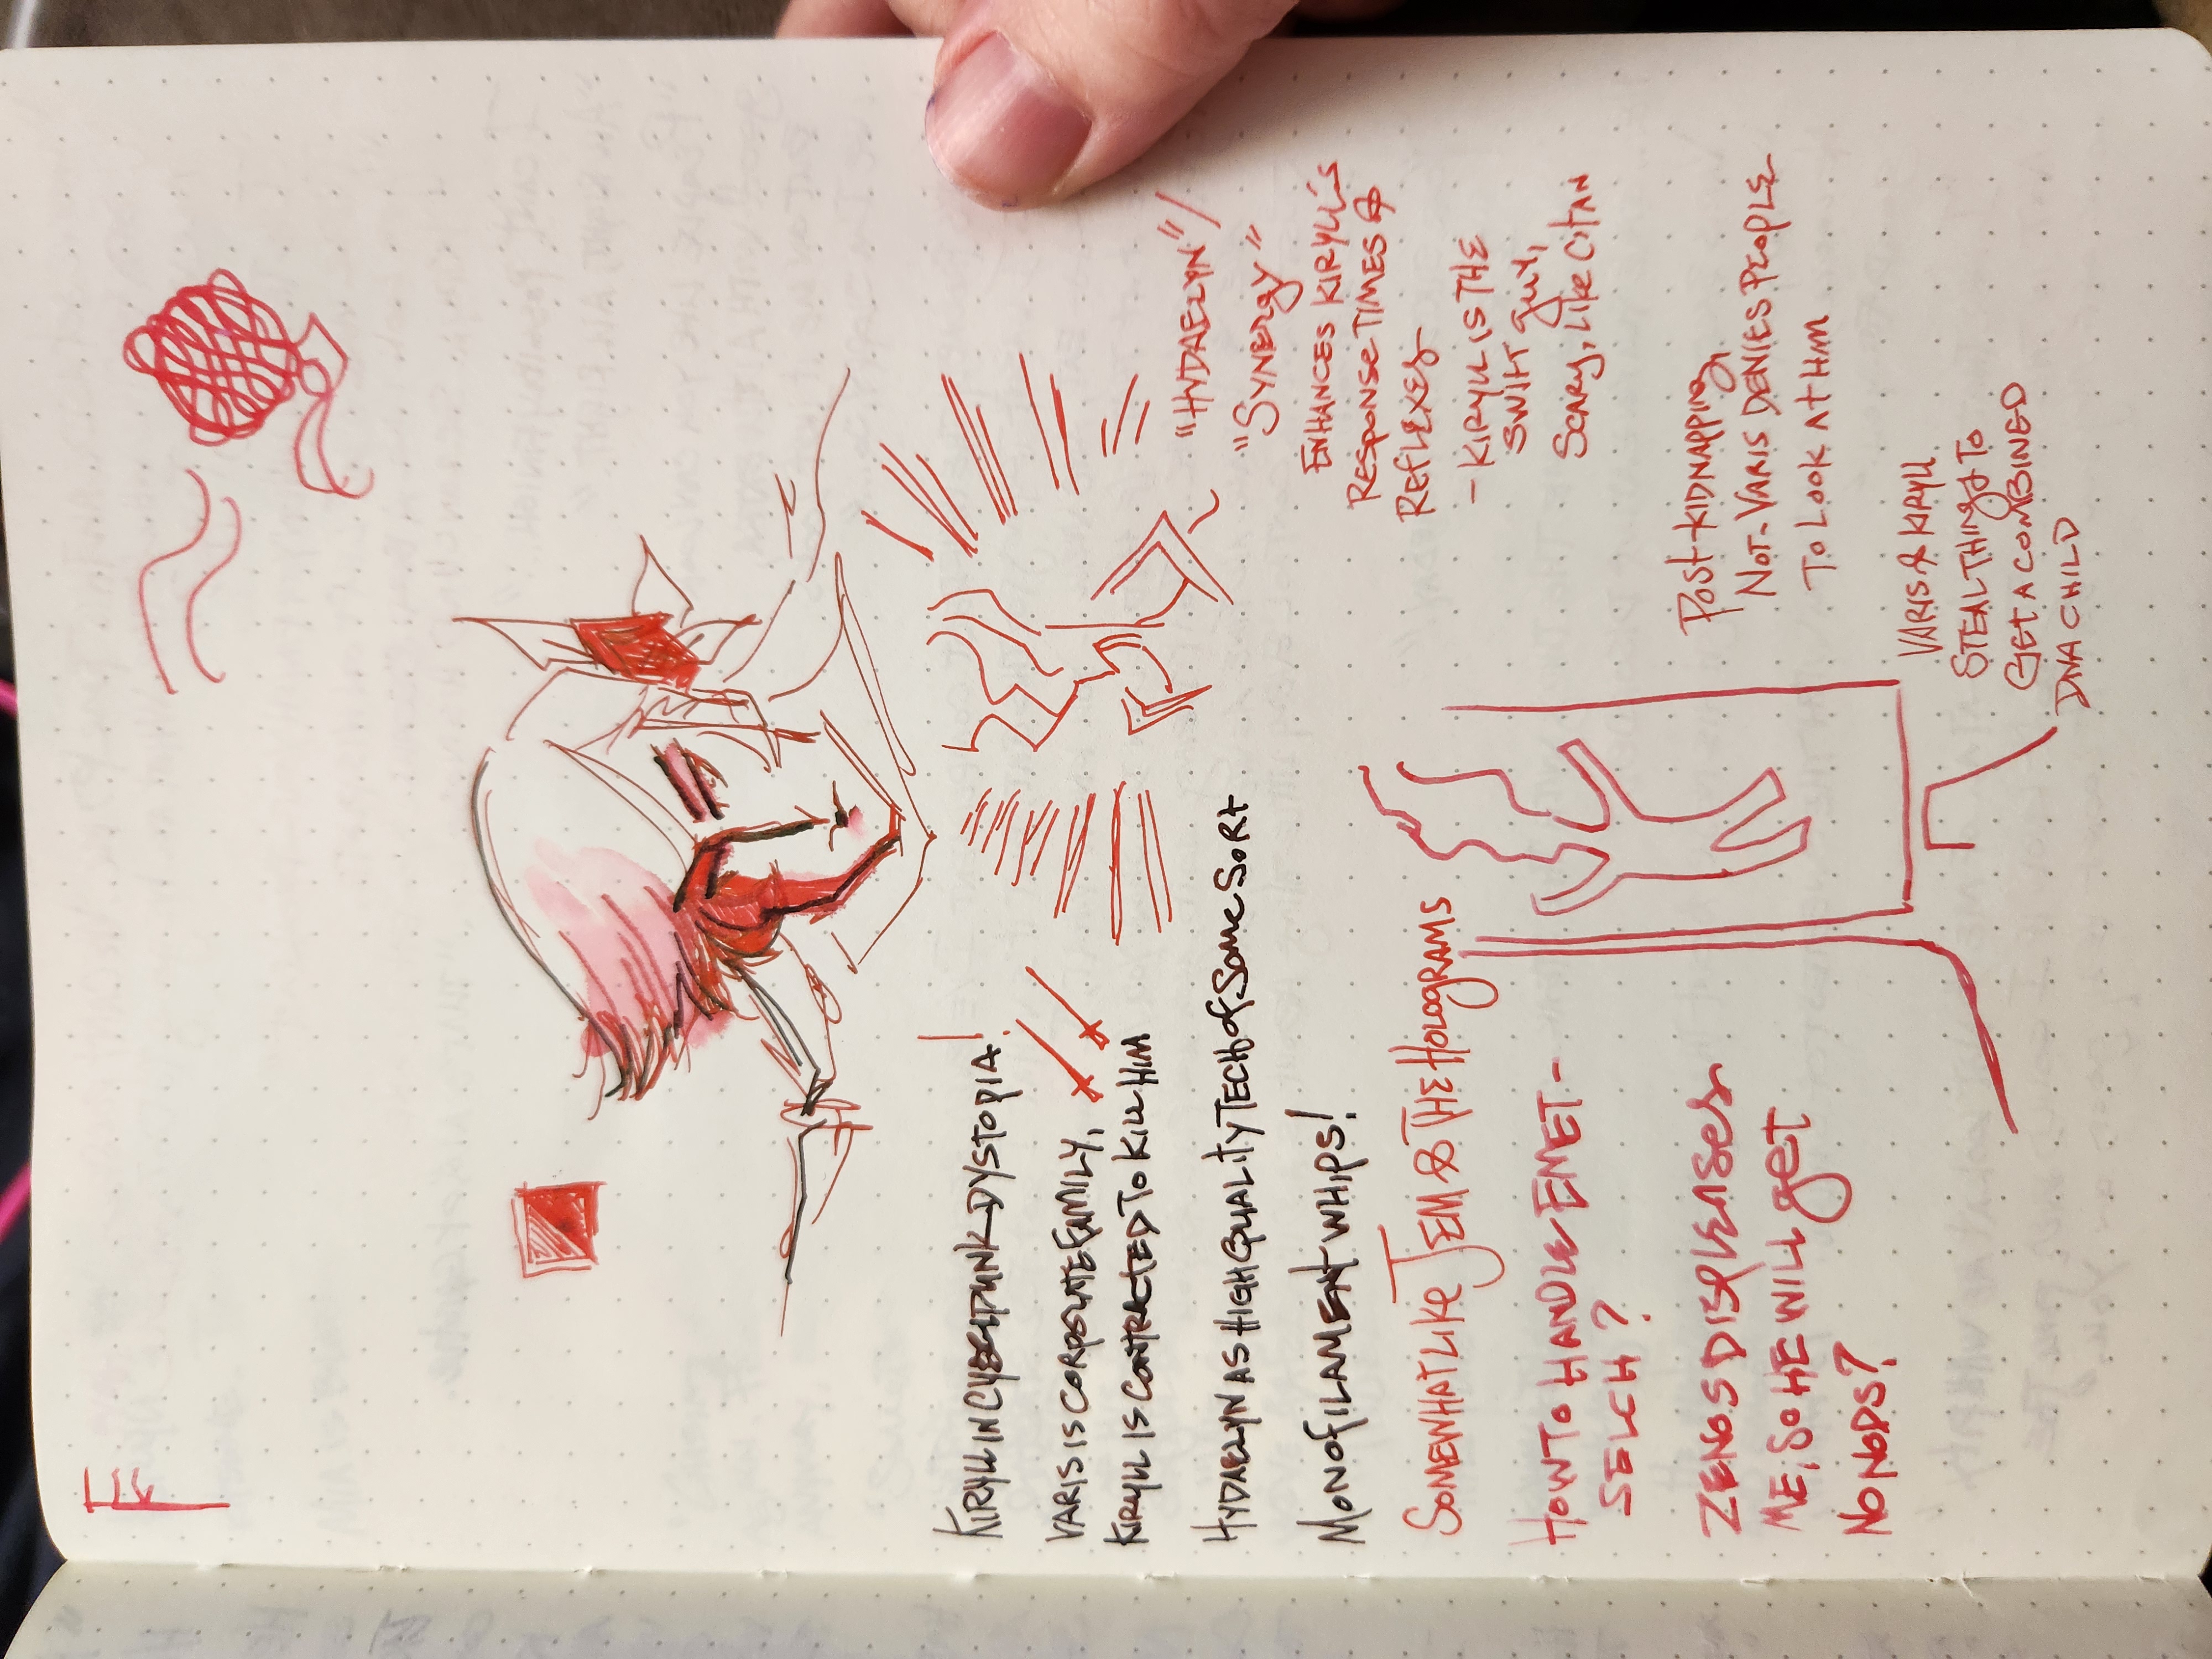 F
KIRYLL IN CYBERPUNK DYSTOPIA!
VARIS IS CORPORATE FAMILY,
KIRYLL IS CONTRACTED TO KILL HIM
HYDAELYN AS HIGH QUALITY TECH OF SOME SORT
MONOFILAMENT WHIPS!
SOMEWHAT LIKE JEM & THE HOLOGRAMS
HOW TO HANDLE EMET-
SELCH?
ZENOS DISPLEASES
ME, SO HE WILL GET
NO NODS?
"HYDAELYN"/
"SYNERGY"
ENHANCES KIRYLL'S
RESPONSE TIMES &
REFLEXES
- KIRYLL IS THE
SWIFT GUY,
SCARY, LIKE CITAN
POST-KIDNAPPING,
NOT-VARIS DENIES PEOPLE
TO LOOK AT HIM
VARIS & KIRYLL
STEALTHING TO
GET A COMBINED
DNA CHILD